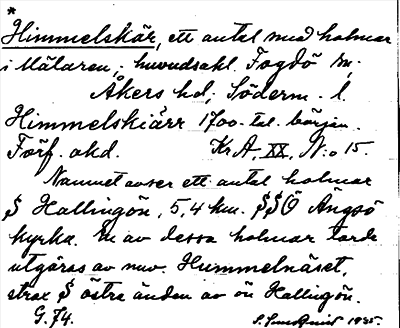 *
Himmelskär, ett antal med holmar
i Mälaren; huvudsakl. Fogdö sn,
Åkers hd, Söderm. l.
Himmelskiärr 1700-tal. början.
Förf. okd. KrA, XX, N:o 15.
Namnet avser ett antal holmar
S Hallingön, 5,4 km. SSÖ Ängsö
kyrka. En av dessa holmar torde
utgöras av nuv. Hummelnäset,
strax S östra änden av ön Hallingön.
G.74. 1935.